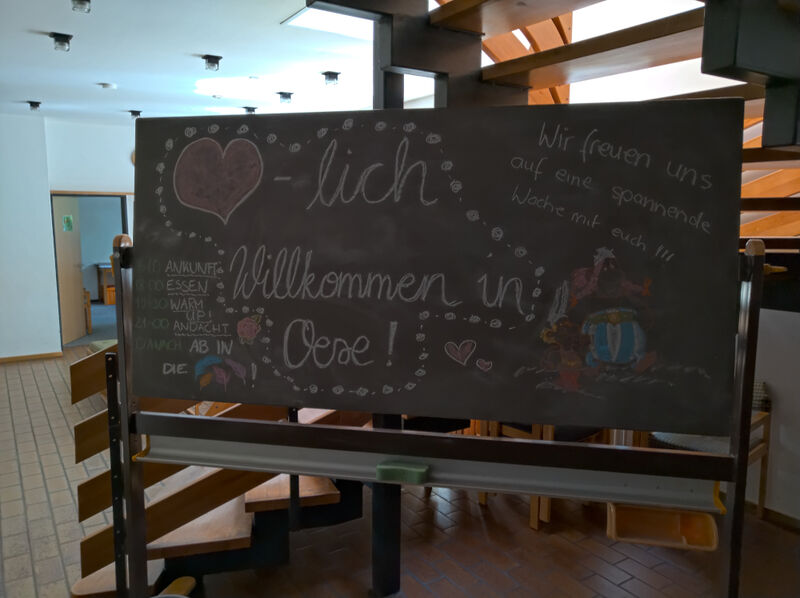 - lich
Willkommen in
Oese!
Wir freuen uns
auf eine spannende
Woche mit euch !!!
ANKUNFT
18:00 ESSEN
19:30 WARM
UP!
21:00 ANDACHT
DANACH AB IN
DIE !